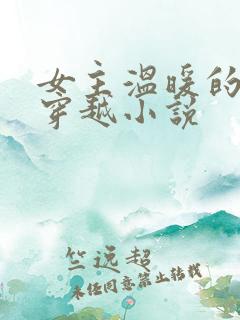 女主温暖的
穿越小说
竺远超
未经同意禁止转载